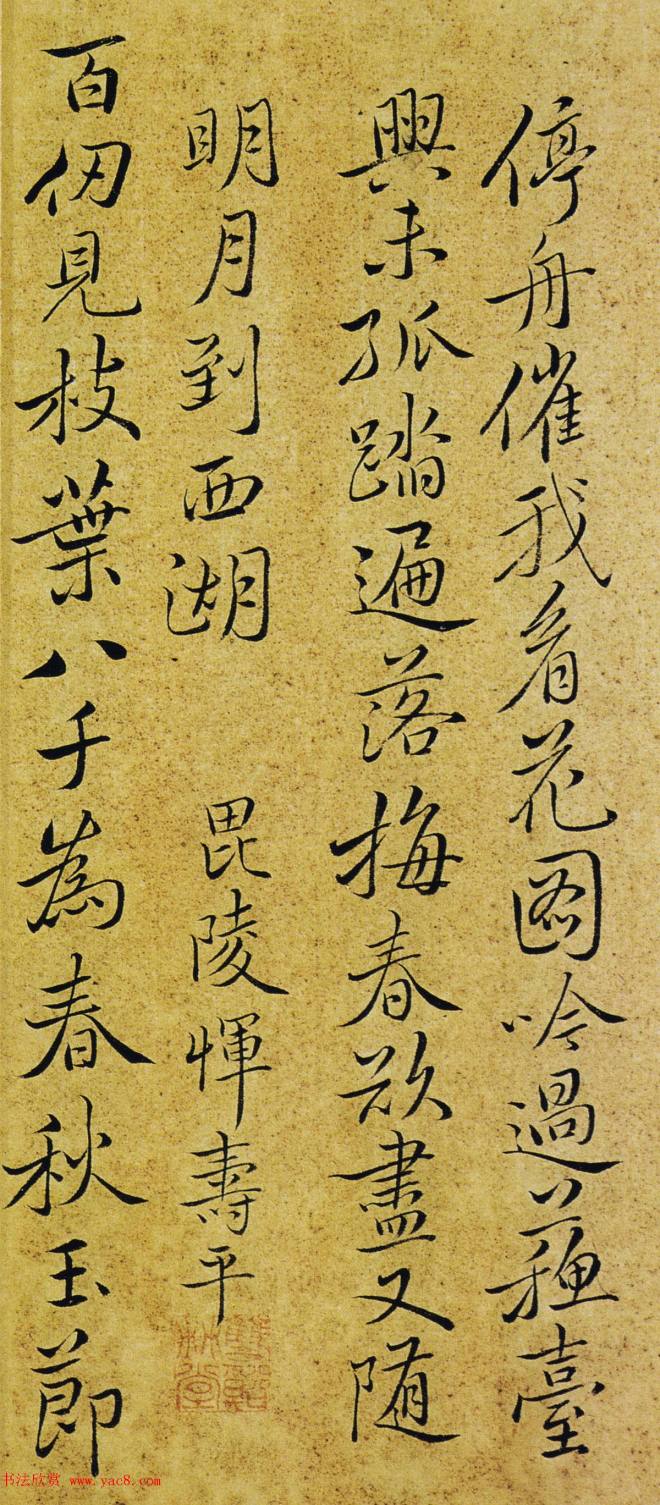 停舟催我看花圖吟過蘇臺
興未孤踏遍落梅春欲盡又隨
明月到西湖　毘陵惲壽平
百仞見枝葉八千為春秋玉節
书法欣赏 www.yac8.com